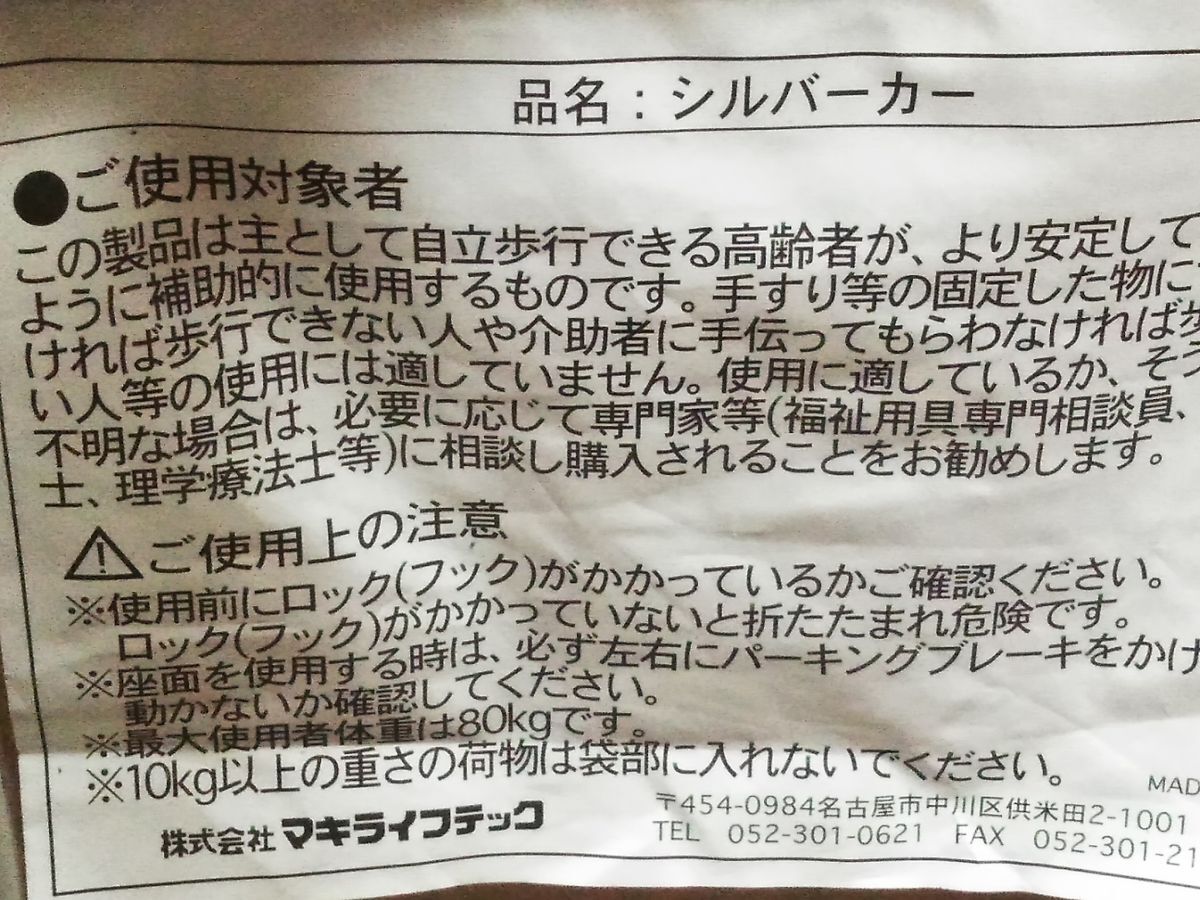 品名：シルバーカー
●ご使用対象者
この製品は主として自立歩行できる高齢者が、より安定して
ように補助的に使用するものです。手すり等の固定した物に
ければ歩行できない人や介助者に手伝ってもらわなければ歩
い人等の使用には適していません。使用に適しているか、そう
不明な場合は、必要に応じて専門家等(福祉用具専門相談員、
士、理学療法士等)に相談し購入されることをお勧めします。
⚠ご使用上の注意
※使用前にロック(フック)がかかっているかご確認ください。
ロック(フック)がかかっていないと折たたまれ危険です。
※座面を使用する時は、必ず左右にパーキングブレーキをかけ
動かないか確認してください。
※最大使用者体重は80kgです。
※10kg以上の重さの荷物は袋部に入れないでください。
MAD
株式会社マキライフテック
〒454-0984名古屋市中川区供米田2-1001
TEL 052-301-0621 FAX 052-301-21